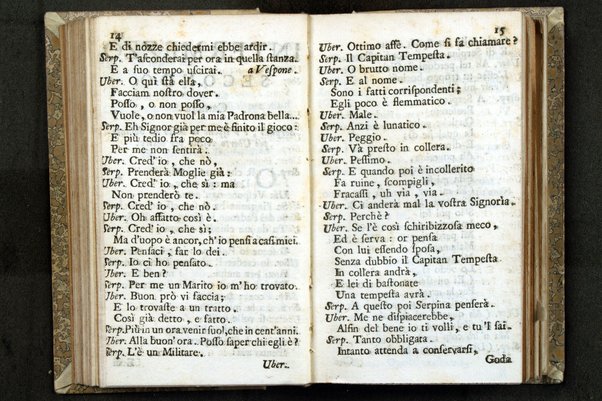 14
E di nozze chiedermi ebbe ardir.
Serp. T'asconderai per ora in quella stanza.
E a suo tempo uscirai. a Vespone.
Uber. O quì stà ella,
Facciam nostro dover.
Posso, o non posso,
Vuole, o non vuol la mia Padrona bella...
Serp. Eh Signor già per me è finito il gioco:
E più tedio fra poco
Per me non sentirà.
Uber. Cred' io, che nò,
Serp. Prenderà Moglie già:
Uber. Cred' io, che sì: ma
Non prenderò te.
Serp. Cred' io, che nò.
Uber. Oh affatto così è.
Serp. Cred' io, che sì;
Ma d'uopo è ancor, ch'io pensi a casi miei.
Uber. Pensaci, far lo dei.
Serp. Io ci ho pensato.
Uber. E ben?
Serp. Per me un Marito io m'ho trovato.
Uber. Buon prò vi faccia;
E lo trovaste a un tratto.
Così già detto, e fatto.
Serp. Più in un ora venir suol, che in cent'anni.
Uber. Alla buon' ora. Posso saper chi egli è?
Serp. L'è un Militare.
Uber.
15
Uber. Ottimo affè. Come si fa chiamare?
Serp. Il Capitan Tempesta.
Uber. O brutto nome.
Serp. E al nome.
Sono i fatti corrispondenti;
Egli poco è flemmatico.
Uber. Male.
Serp. Anzi è lunatico.
Uber. Peggio.
Serp. Và presto in collera.
Uber. Pessimo.
Serp. E quando poi è incollerito
Fa ruine, scompigli,
Fracassi, uh via, via.
Uber. Ci anderà mal la vostra Signoria.
Serp. Perchè?
Uber. Se l'è così schiribizzosa meco,
Ed è serva: or pensa
Con lui essendo sposa,
Senza dubbio il Capitan Tempesta
In collera andrà,
E lei di bastonate
Una tempesta avrà.
Serp. A questo poi Serpina penserà.
Uber. Me ne dispiacerebbe,
Alfin del bene io ti volli, e tu'l sai.
Serp. Tanto obbligata.
Intanto attenda a conservarsi,
Goda